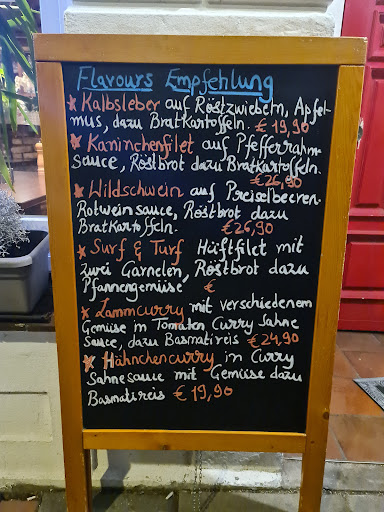 Flavours Empfehlung
* Kalbsleber auf Röstzwiebeln, Apfel-
mus, dazu Bratkartoffeln. € 19,90
* Kaninchenfilet auf Pfefferrahm
sauce, Röstbrot dazu Bratkartoffeln.
€ 26,90
* Wildschwein auf Preiselbeeren
Rotweinsauce, Röstbrot dazu
Bratkartoffeln. € 26,90
* Surf & Turf Hüftfilet mit
zwei Garnelen, Röstbrot dazu
Pfannengemüse €
* Lammcurry mit verschiedenem
Gemüse in Tomaten Curry Sahne
Sauce, dazu Basmatireis € 24,90
* Hähnchencurry in Curry
Sahnesauce mit Gemüse dazu
Basmatireis € 19,90